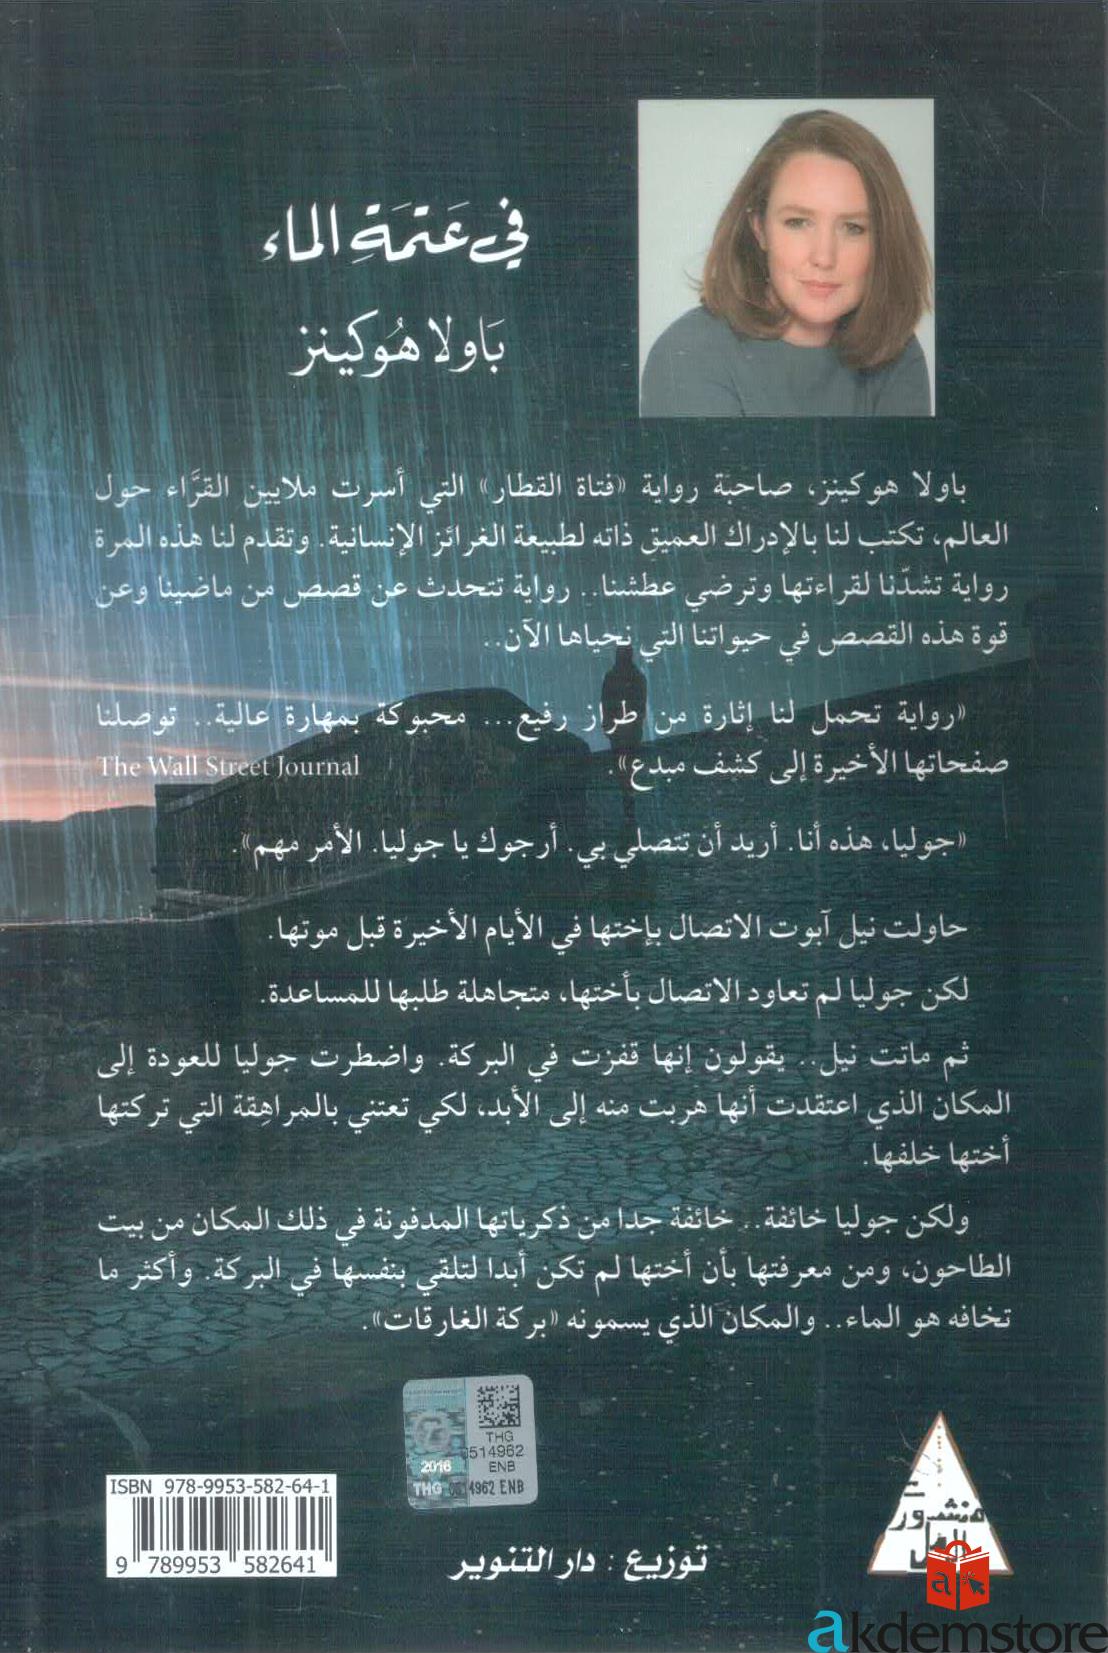 في عَتمَةِ الماء
بَاولا هُوكينز
باولا هوكينز، صاحبة رواية «فتاة القطار» التي أسرت ملايين القرَّاء حول
العالم، تكتب لنا بالإدراك العميق ذاته لطبيعة الغرائز الإنسانية. وتقدم لنا هذه المرة
رواية تشدّنا لقراءتها وترضي عطشنا.. رواية تتحدث عن قصص من ماضينا وعن
قوة هذه القصص في حيواتنا التي نحياها الآن..
«رواية تحمل لنا إثارة من طراز رفيع... محبوكة بمهارة عالية.. توصلنا
صفحاتها الأخيرة إلى كشف مبدع». The Wall Street Journal
«جوليا، هذه أنا. أريد أن تتصلي بي. أرجوك يا جوليا. الأمر مهم».
حاولت نيل آبوت الاتصال بإختها في الأيام الأخيرة قبل موتها.
لكن جوليا لم تعاود الاتصال بأختها، متجاهلة طلبها للمساعدة.
ثم ماتت نيل.. يقولون إنها قفزت في البركة. واضطرت جوليا للعودة إلى
المكان الذي اعتقدت أنها هربت منه إلى الأبد، لكي تعتني بالمراهِقة التي تركتها
أختها خلفها.
ولكن جوليا خائفة.. خائفة جدا من ذكرياتها المدفونة في ذلك المكان من بيت
الطاحون، ومن معرفتها بأن أختها لم تكن أبدا لتلقي بنفسها في البركة. وأكثر ما
تخافه هو الماء.. والمكان الذي يسمونه «بركة الغارقات».
THG
0514962
ENB
2016
THG 4962 ENB
ISBN 978-9953-582-64-1
9 789953 582641
توزيع : دار التنوير
a
akdemstore